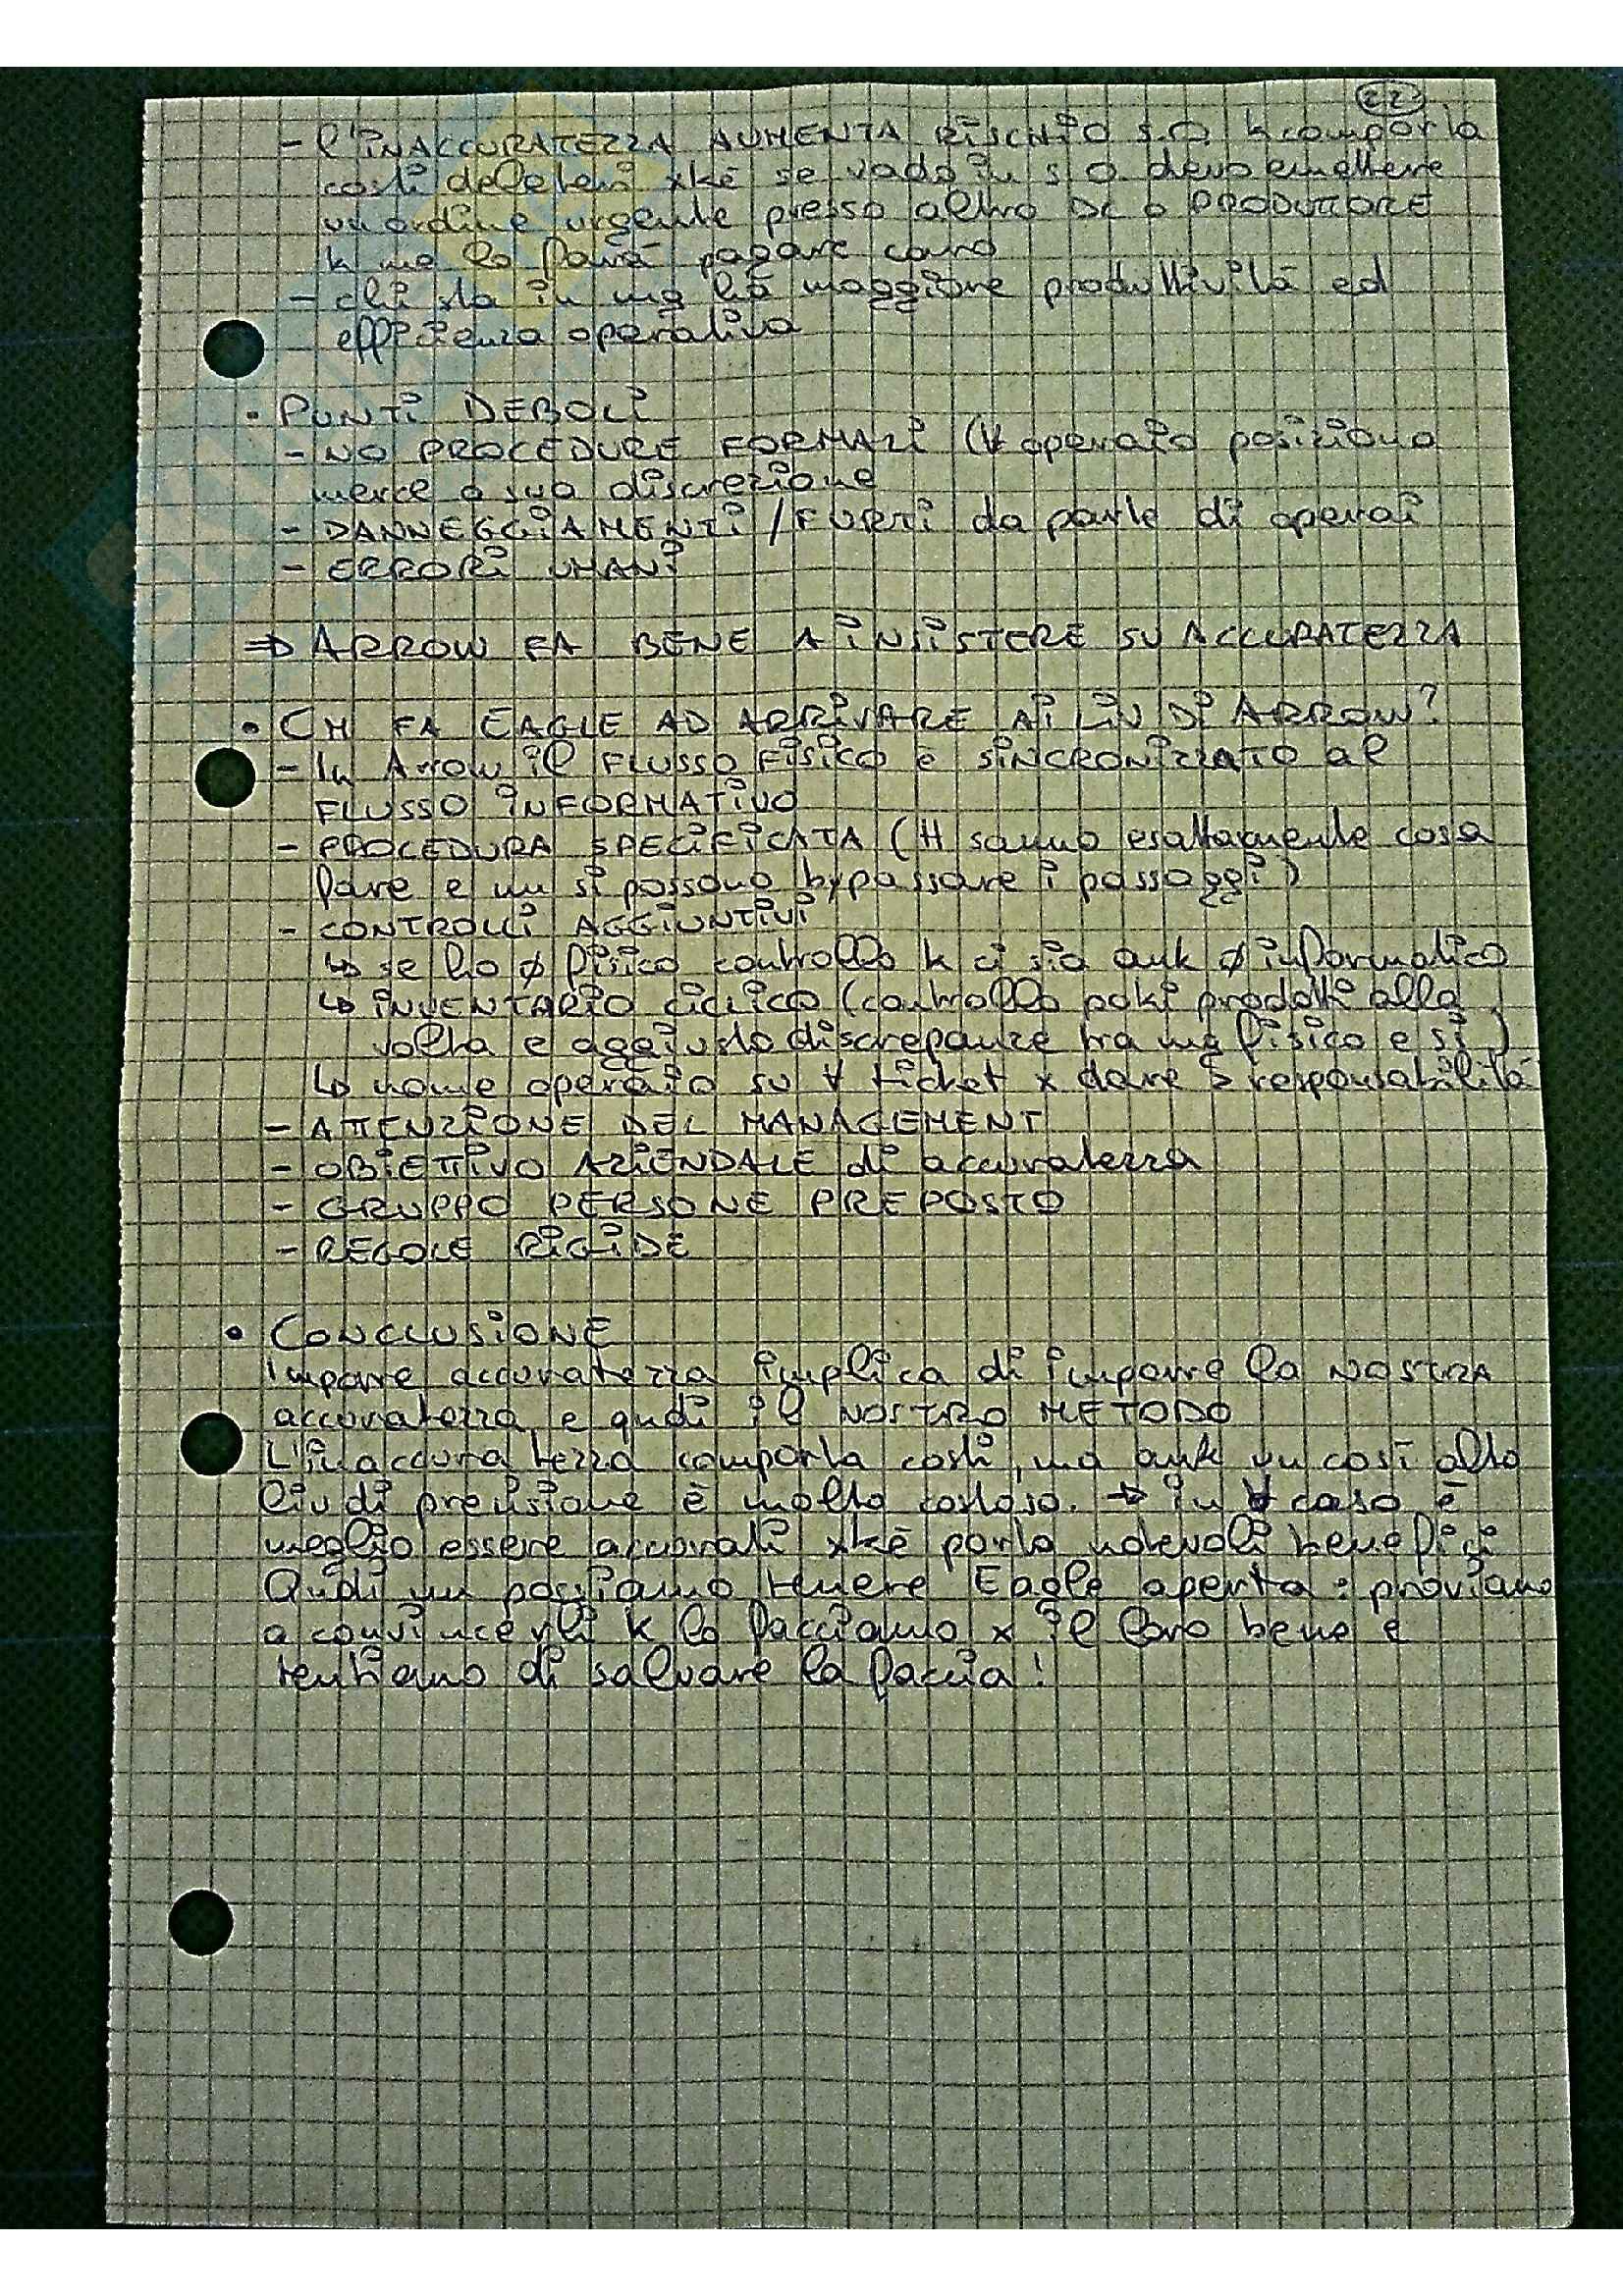 22
- l'INACCURATEZZA AUMENTA RISCHIO S.O. k comporta
costi deleteri xké se vado in s.o. devo emettere
un ordine urgente presso altro DC o PRODUTTORE
k me lo farà pagare caro
- chi sta in mg ha maggiore produttività ed
efficienza operativa
• PUNTI DEBOLI
- NO PROCEDURE FORMALI (∀ operaio posiziona
merce a sua discrezione
- DANNEGGIAMENTI / FURTI da parte di operai
- ERRORI UMANI
⇒ ARROW FA BENE A INSISTERE SU ACCURATEZZA
• CM FA EAGLE AD ARRIVARE AI LIV DI ARROW?
- In Arrow il FLUSSO FISICO è SINCRONIZZATO al
FLUSSO INFORMATIVO
- PROCEDURA SPECIFICATA (tt sanno esattamente cosa
fare e nn si possono bypassare i passaggi)
- CONTROLLI AGGIUNTIVI
↳ se ho ∅ fisico controllo k ci sia ank ∅ informatico
↳ INVENTARIO CICLICO (controllo poki prodotti alla
volta e aggiusto discrepanze tra mg fisico e si)
↳ nome operaio su ∀ ticket x dare > responsabilità
- ATTENZIONE DEL MANAGEMENT
- OBIETTIVO AZIENDALE di accuratezza
- GRUPPO PERSONE PREPOSTO
- REGOLE RIGIDE
• CONCLUSIONE
Imporre accuratezza implica di imporre la NOSTRA
accuratezza e qudi il NOSTRO METODO
L'inaccuratezza comporta costi, ma ank un così alto
liv di precisione è molto costoso. → in ∀ caso è
meglio essere accurati xké porta notevoli benefici
Qudi nn possiamo tenere Eagle aperta: proviamo
a convincerli k lo facciamo x il loro bene e
tentiamo di salvare la faccia!